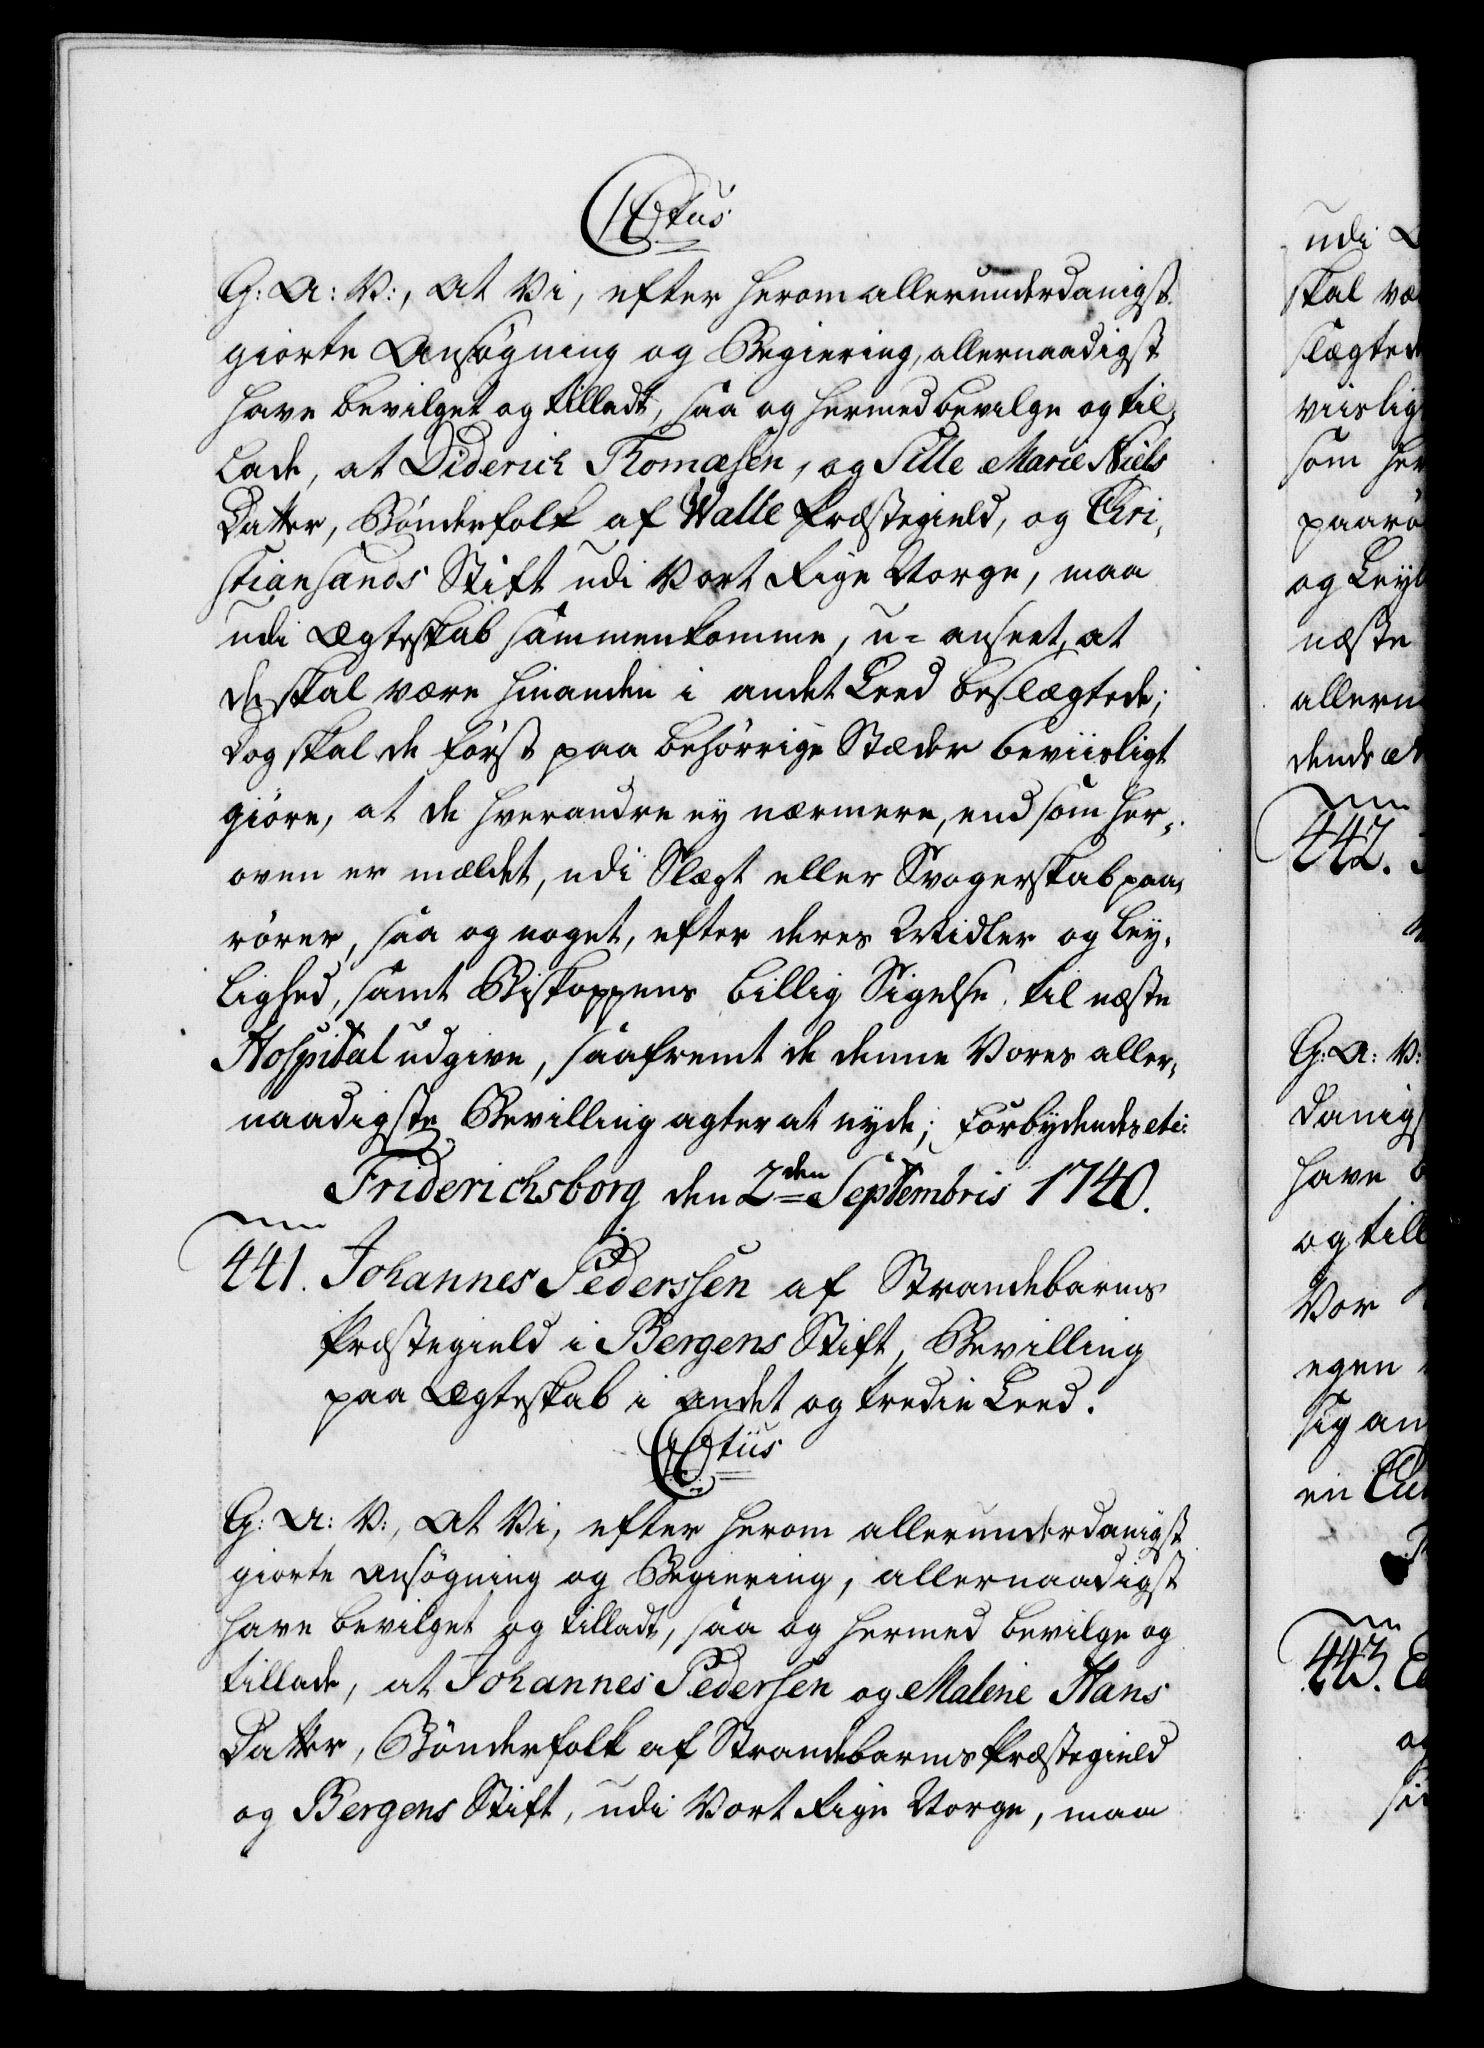 C6tus
G: A: V:, At Vi, efter herom allerunderdanigst
giorte Ansøgning og Begiering, allernaadigst
have bevilget og tilladt, saa og hermed bevilge og til-
lade, at Diderich Thomæsen, og Sille Marie Niels
Datter, Bønderfolk af Walle Præstegield, og Chri-
stiansands Stift udi Vort Rige Norge, maa
udi Ægteskab sammenkomme, u-anseet, at
de skal være hinanden i andet Leed beslægtede;
dog skal de først paa behørrige Stæder beviisligt
giøre, at de hverandre ey nærmere, end som her-
oven er meldet, udi Slægt eller Svogerskab paa-
rører, saa og noget, efter deres Midler og Ley-
lighed, samt Biskoppens billig Sigelse til næste
Hospital udgive, saafremt de denne Vores aller-
naadigste Bevilling agter at nyde; Forbydendes etc:
Friderichsborg den 2den Septembris 1740.
441. Johannes Pederssen af Strandebarms
Præstegield i Bergens Stift, Bevilling
paa Ægteskab i andet og tredie Leed.
G: A: V:, At Vi, efter herom allerunderdanigst
giorte Ansøgning og Begiering, allernaadigst
have bevilget og tilladt, saa og hermed bevilge og
tillade, at Johannes Pedersen og Malene Hans
Datter, Bønderfolk af Strandebarms Præstegield
og Bergens Stift, udi Vort Rige Norge, maa
udi
skal væ
slægted
viislig
som her
paarø
og Leyl
næste
allern
dendes et
442.
G: A: V:
danigs
have b
og till
Vor
egen
sig an
en
443.
og